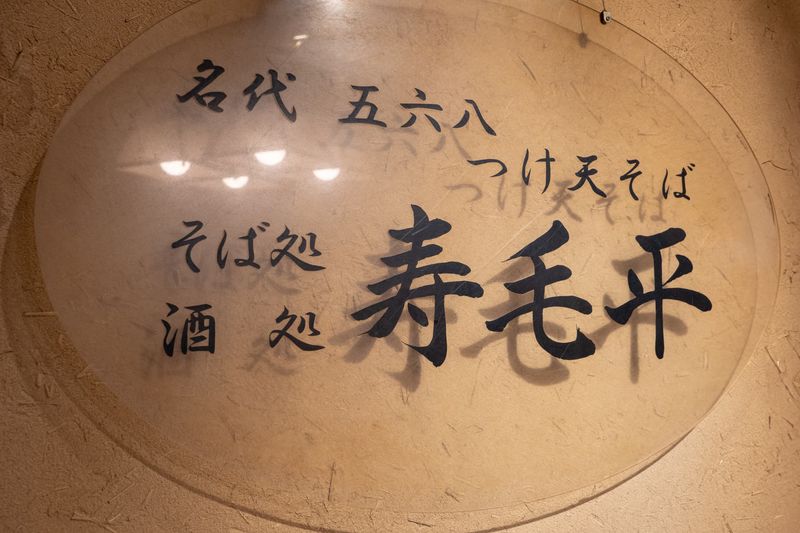 名代 五六八
つけ天そば
そば処
酒処
寿毛平